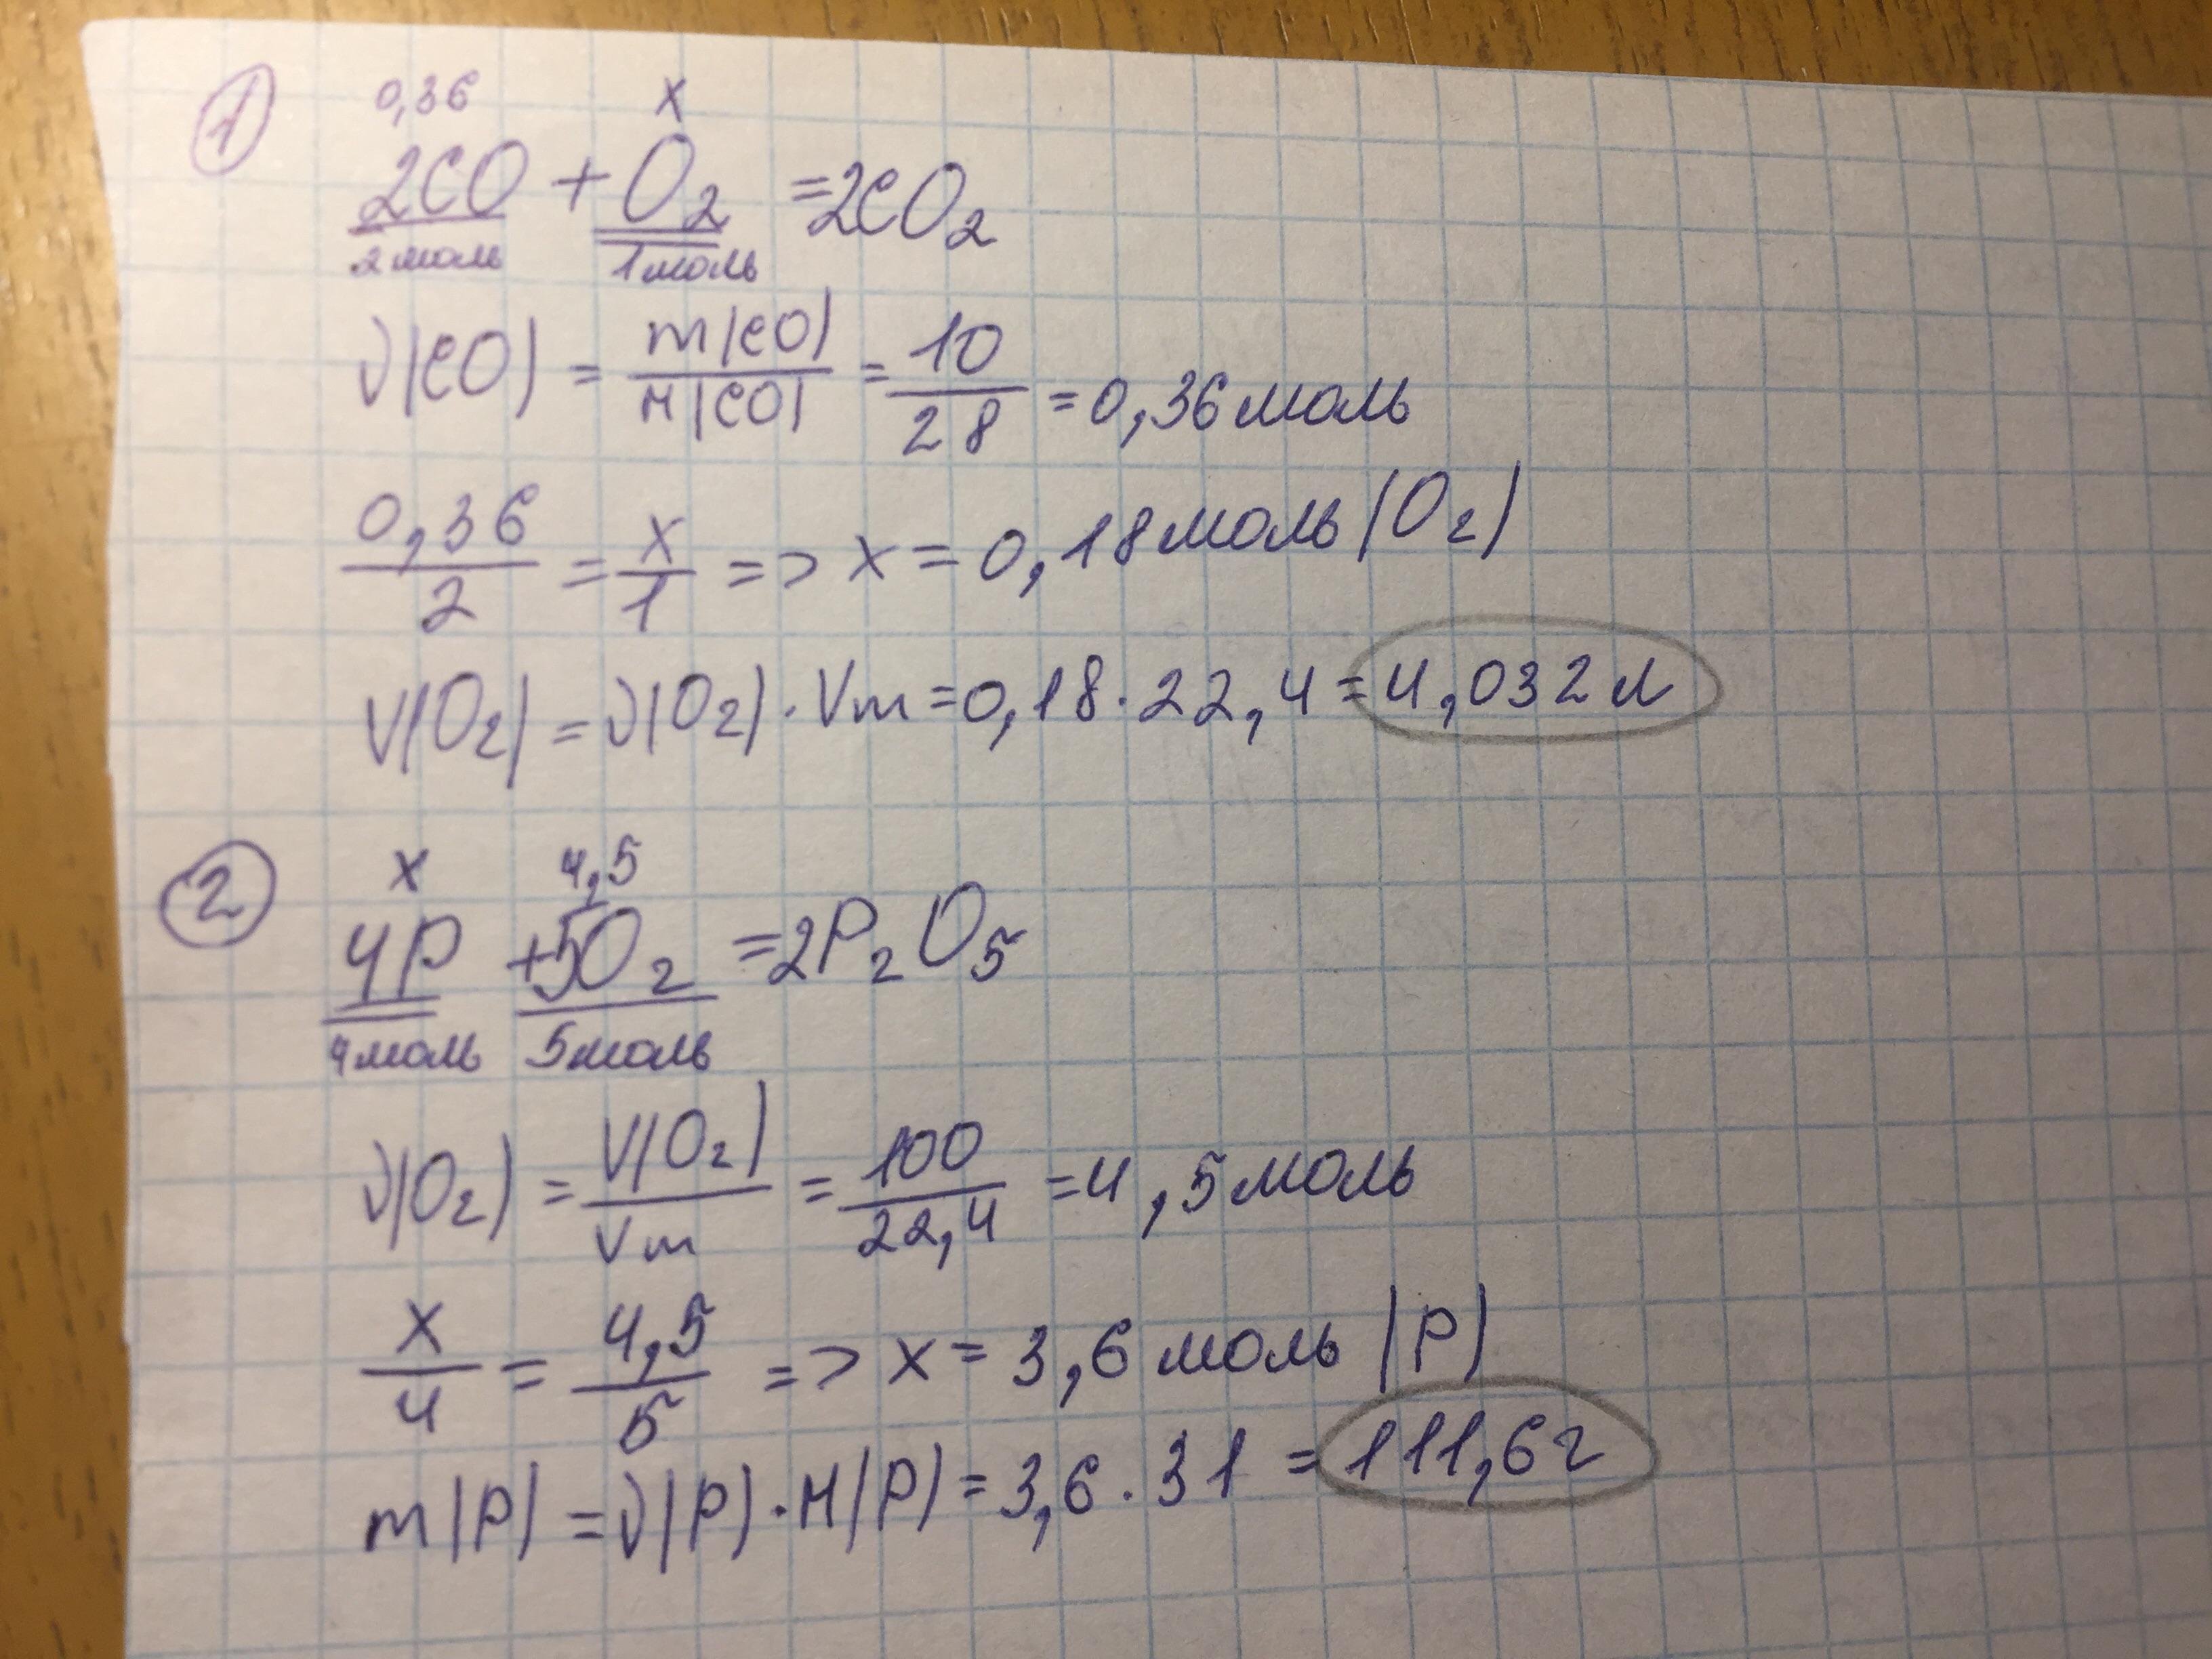 1
0,36 x
2CO + O₂ =2CO₂
2 моль 1 моль
ν(CO) = m(CO)/M(CO) = 10/28 =0,36 моль
0,36/2 = x/1 => x = 0,18 моль (O₂)
V(O₂) = ν(O₂)·Vm=0,18·22,4=4,032 л
2
x 4,5
4P +5O₂ =2P₂O₅
4 моль 5 моль
ν(O₂) = V(O₂)/Vm = 100/22,4 =4,5 моль
x/4 = 4,5/5 => x = 3,6 моль (P)
m(P) =ν(P)·M(P) = 3,6·31 = 111,6 г